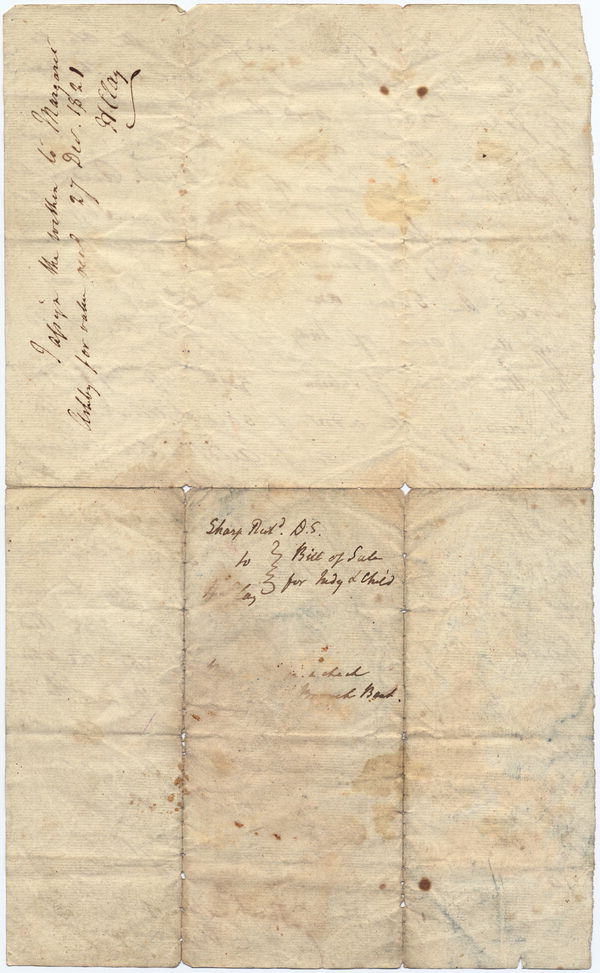 I assign the within to Margaret
Ashby for value recd 27 Dec. 1821
H Clay
Sharp Richd. D.S.
to } Bill of Sale
Clay } for Judy & Child
check
Branch Bank.